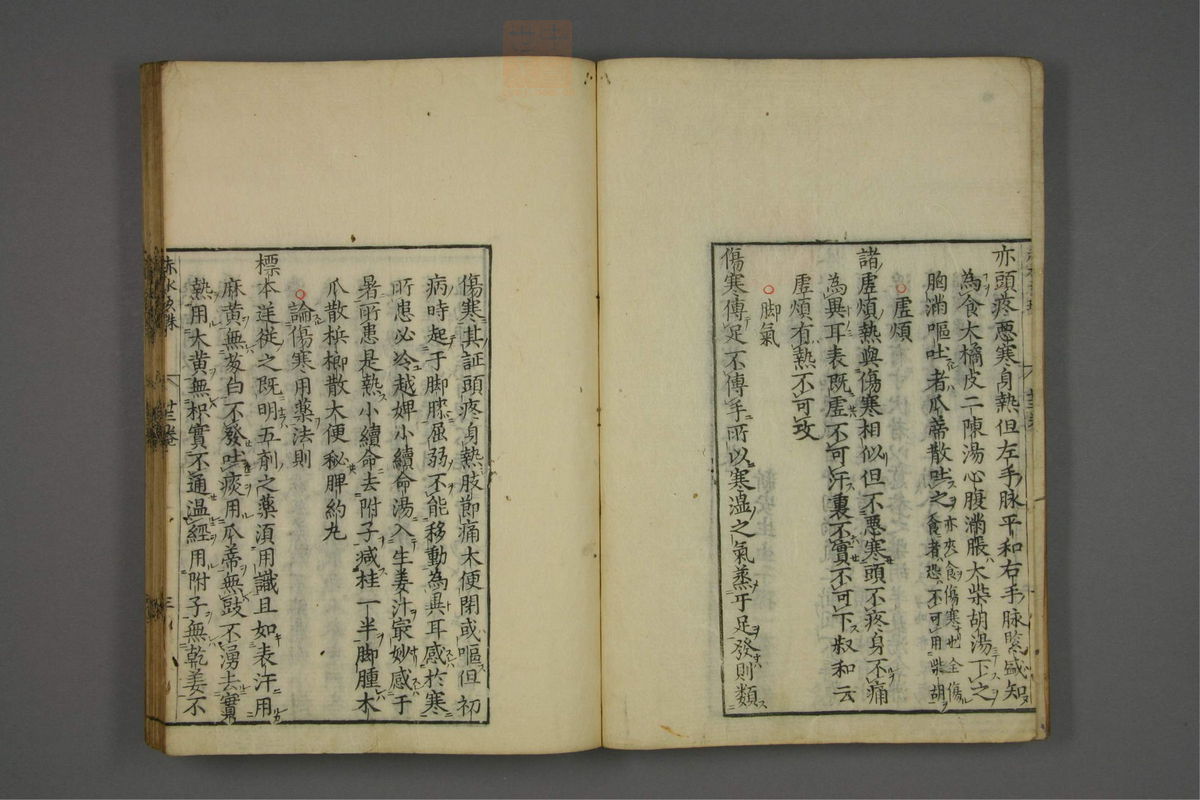 亦頭疼悪寒身熱但左手脉平和右手脉緊盛知
為食大橘皮二陳湯心腹滿脹大柴胡湯下之
胸滿嘔吐者瓜蒂散吐之亦夾食傷寒也全傷食者恐不可用柴胡
○虛煩
諸虛煩熱與傷寒相似但不悪寒頭不疼身不痛
為異耳表既虛不可汗裏不實不可下叔和云
虛煩有熱不可攻
○脚氣
傷寒傳足不傳手所以寒濕之氣蒸于足發則類
傷寒其証頭疼身熱肢節痛大便閉或嘔但初
病時起于脚膝屈弱不能移動為異耳感於寒
所患必冷越婢小續命湯入生姜汁最妙感于
暑所患是熱小續命去附子减桂一半脚腫木
瓜散梹榔散大便秘脾約丸
○論傷寒用藥法則
標本逆從之既明五劑之藥湏用識且如表汗用
麻黄無葱白不發吐痰用瓜蒂無豉不湧去實
熱用大黄無枳實不通温經用附子無乾姜不
赤水玄珠 十三卷 三